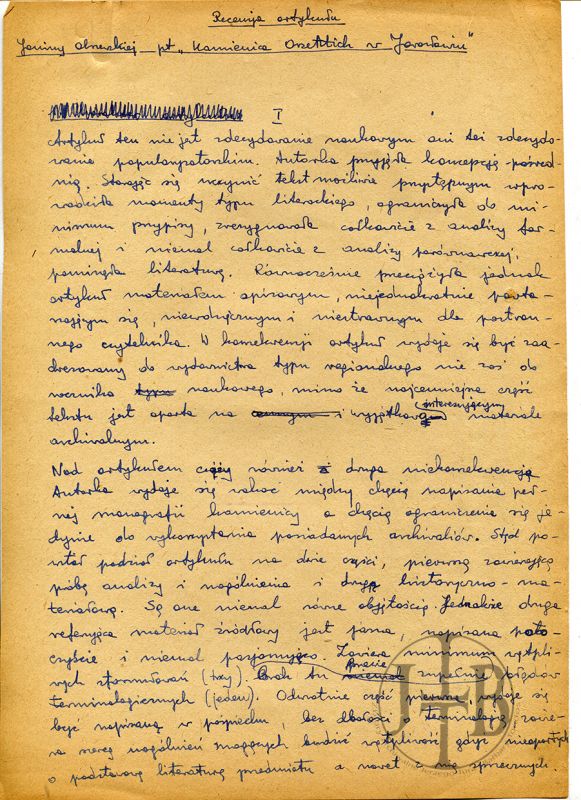 Recenzja artykułu
Janiny pt „Kamienica Orsettich w Jarosławiu"
I
Artykuł ten nie jest zdecydowanie naukowym ani też zdecydo-
wanie popularyzatorskim. Autorka przyjęła koncepcję pośred-
nią. Starając się uczynić tekst możliwie przystępnym wpro-
wadziła momenty typu literackiego, ograniczyła do mi-
nimum przypisy, zrezygnowała całkowicie z analizy for-
malnej i niemal całkowicie z analizy porównawczej,
pominęła literaturę. Równocześnie przeciążyła jednak
artykuł materiałem opisowym, niejednokrotnie powta-
rzającym się, nieważnym i niestrawnym dla postron-
nego czytelnika. W konsekwencji artykuł wydaje się być zaa-
dresowany do wydawnictwa typu regionalnego nie zaś do
rocznika typu naukowego, mimo że najcenniejsza część
tekstu jest oparta na cennym i wyjątkowo interesującym materiale
archiwalnym.
Nad artykułem ciąży również druga niekonsekwencja
Autorka wydaje się wahać między chęcią napisania peł-
nej monografii kamienicy a chęcią ograniczenia się je-
dynie do wykorzystania posiadanych archiwaliów. Stąd po-
wstał podział artykułu na dwie części, pierwszą zawierającą
próbę analizy i uogólnienia i drugą historyczno-ma-
teriałową. Są one niemal równe objętością. Jednakże druga
referująca materiał źródłowy jest jasna, napisana poto-
czyście i niemal pasjonująco. Zawiera minimum wątpli-
wych sformułowań (trzy). Brak tu prawie niemal zupełnie błędów
terminologicznych (jeden). Odwrotnie część pierwsza, wydaje się
być napisaną w pośpiechu, bez dbałości o terminologię, zawie-
ra szereg uogólnień mogących budzić wątpliwość gdyż nieopartych
o podstawową literaturę przedmiotu a nawet z nią sprzecznych.